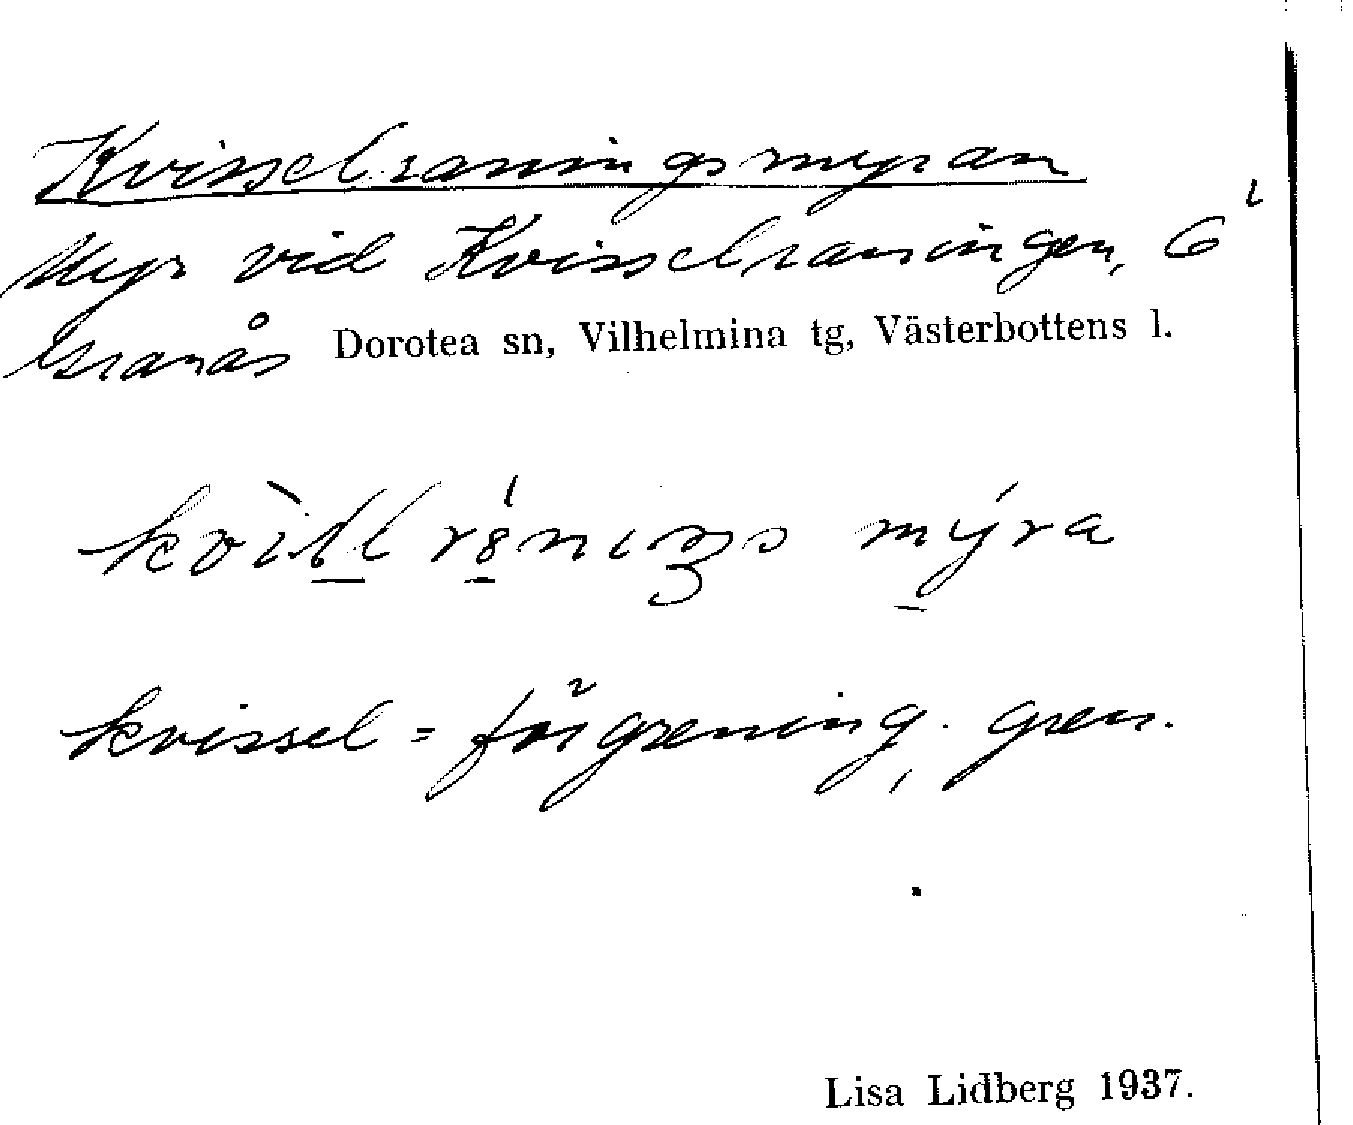 Kvisselraningsmyran
Myr vid Kvisselraningen, 6 i
Granås Dorotea sn, Vilhelmina tg, Västerbottens l.
mýra
kvissel = förgrening, gren.
Lisa Lidberg 1937.